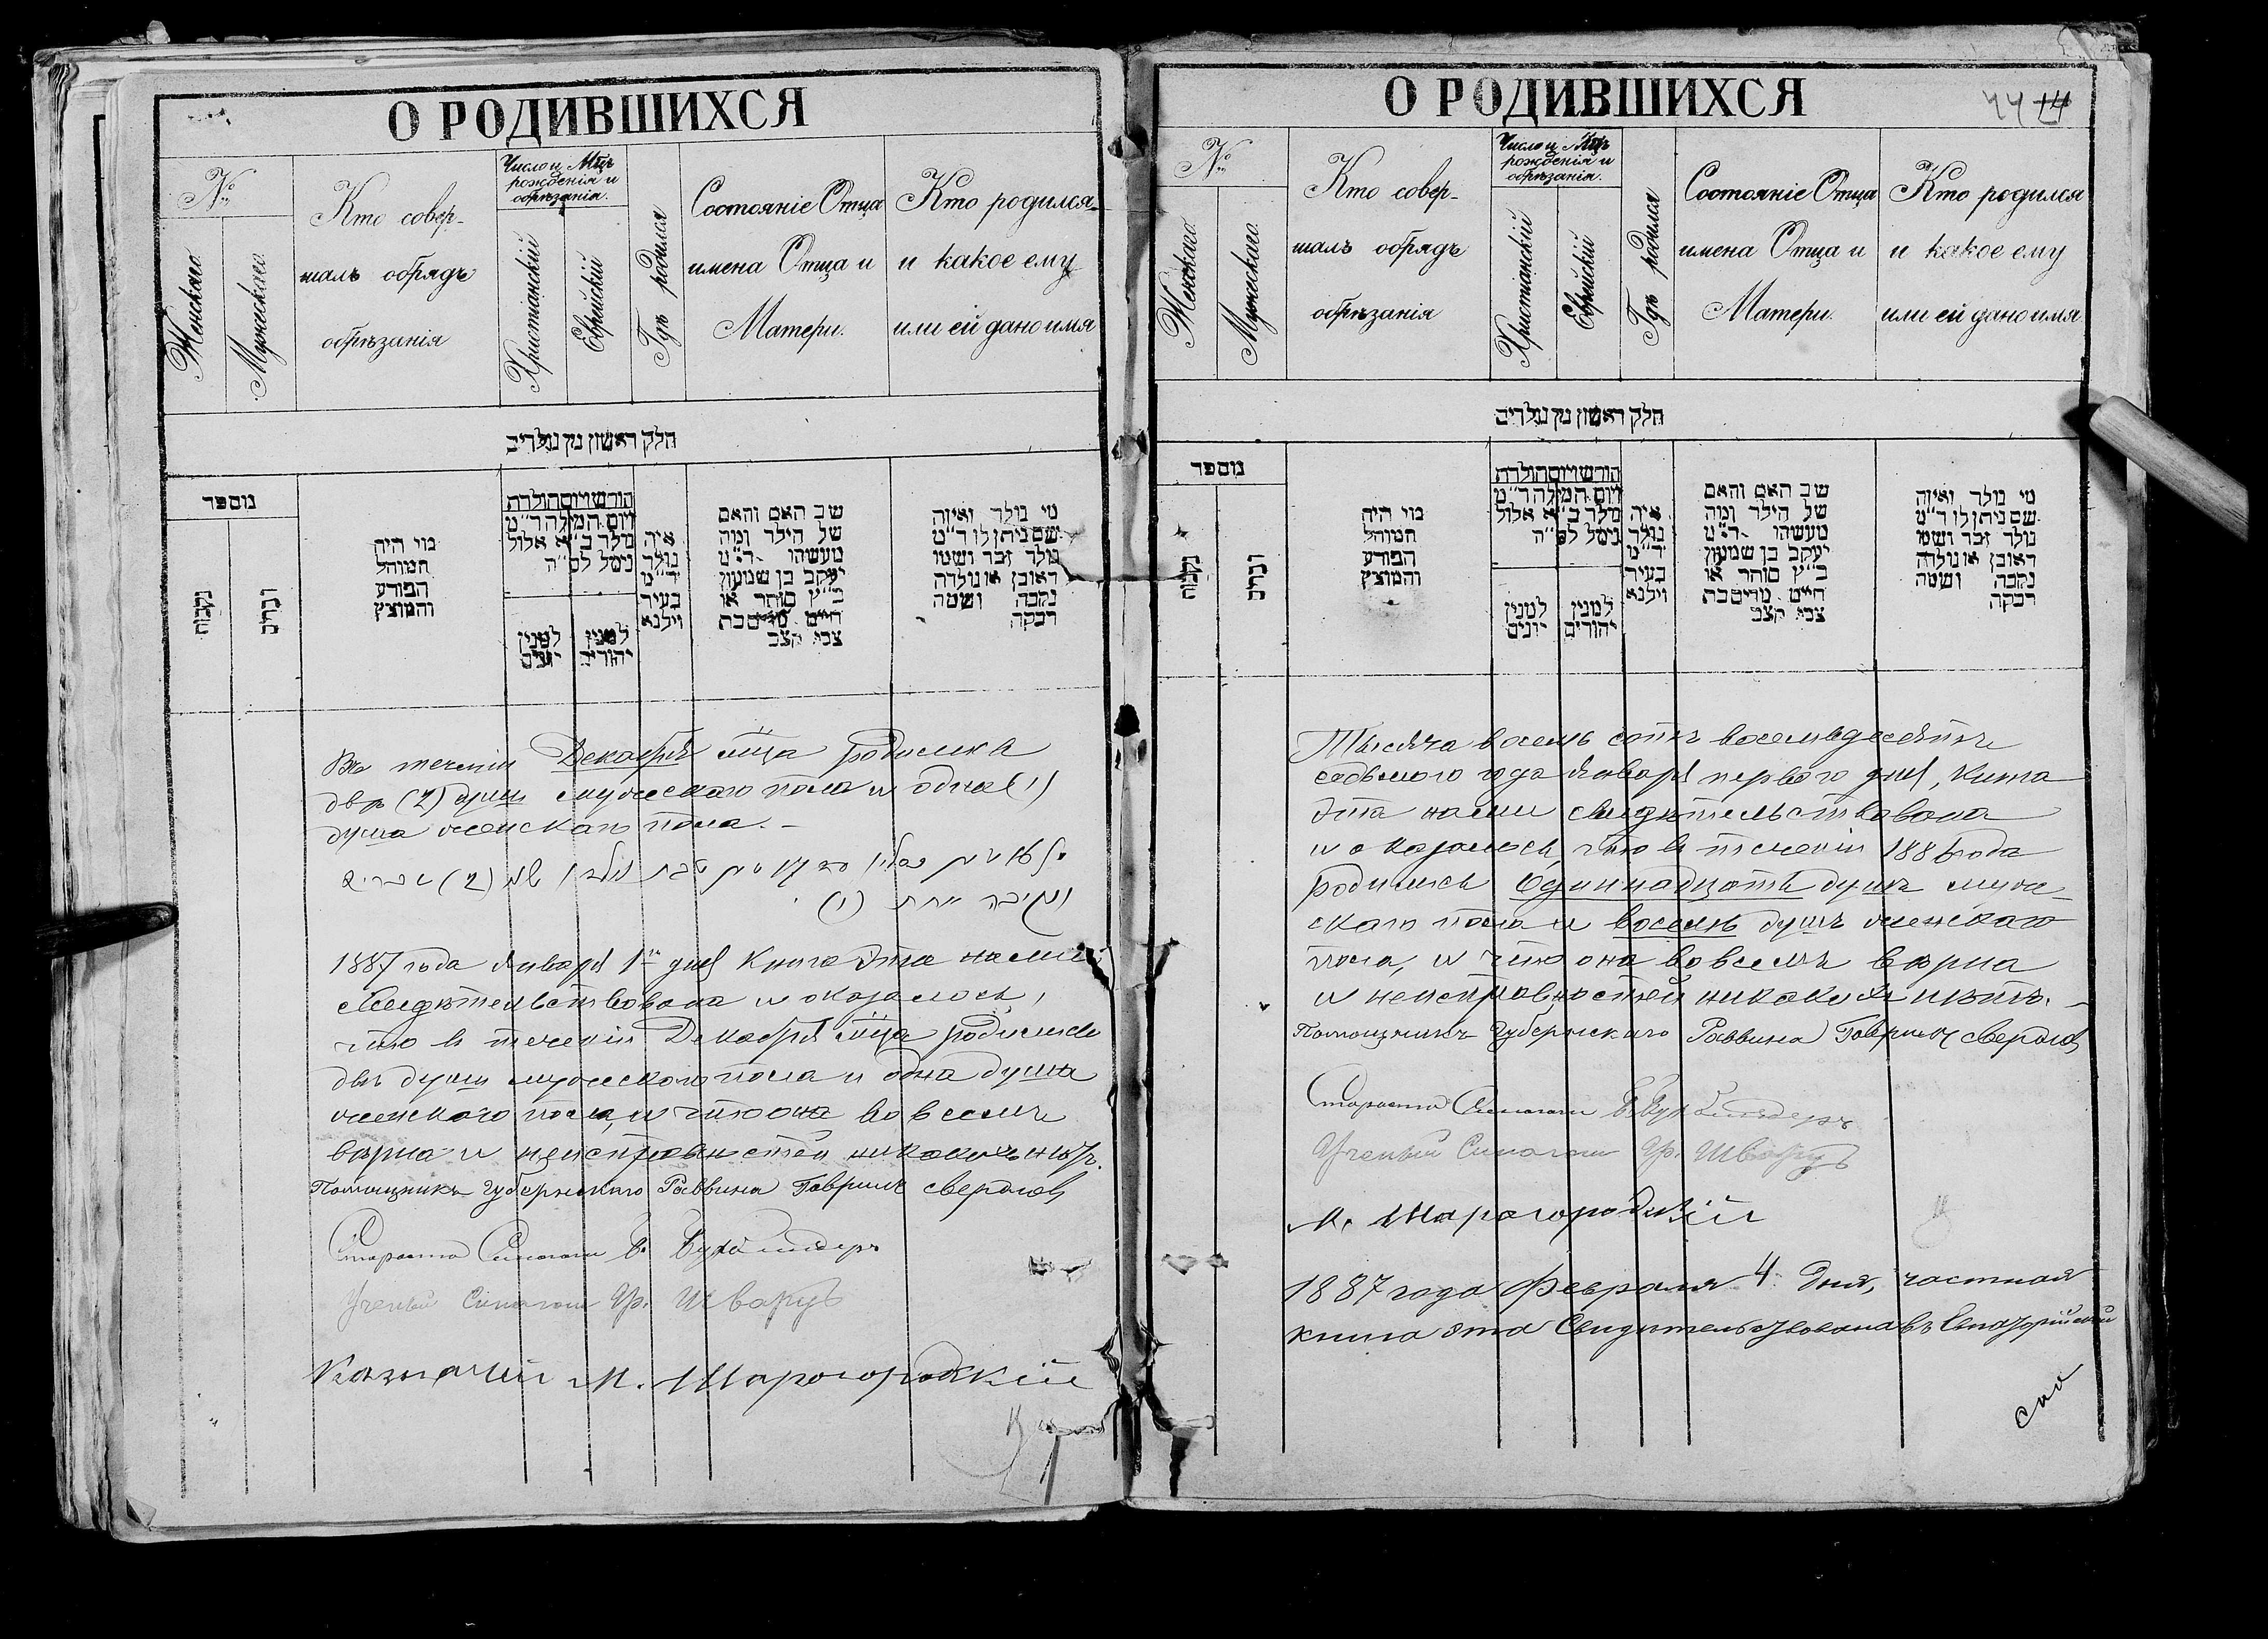 О РОДИВШИХСЯ
№
Женскаго
Мужескаго
Кто совер-
шалъ обрядъ
обрѣзанія
Число и Мцъ
рожденія и
обрѣзанія.
Христіанскій
Еврейскій
Гдѣ родился
Состояніе Отца
имена Отца и
Матери.
Кто родился
и какое ему
или ей дано имя
חלק ראשון מן נולדים
מוספר
נקבות
זכרים
מי היה
המוהל
הפורע
והמוצץ
חודש ויום הולדת
ויום המילה ד״מ
נולד ב״א אלול
נימל לס״ה
למנין
יונים
למנין
יהודים
איה
נולד
ד״מ
בעיר
וילנא
שם האב והאם
של הילד ומה
מעשהו ד״מ
יעקב בן שמעון
כ״ץ סוחר או
חיים
צבי קצב
מי נולד ואיזה
שם ניתן לו ד״מ
נולד זכר ושמו
ראובן או נולדה
נקבה ושמה
רבקה
Въ теченіи Декабря мѣца родились
двѣ (2) души мужескаго пола и одна (1)
душа женскаго пола. –
(2)
(1)
1887 года Января 1го дня книга эта нами
свидѣтельствована и оказалось,
что въ теченіи Декабря мѣца родились
двѣ души мужескаго пола и одна душа
женскаго пола, и что она во всемъ
вѣрна и неисправностей никакихъ нѣтъ.
Помощникъ Губернскаго Раввина Гавріилъ Свердловъ
Староста Синагоги
Ученый Синагоги Гр. Шварцъ
Казначей М. Шарогородскій
О РОДИВШИХСЯ
44 14
№
Женскаго
Мужескаго
Кто совер-
шалъ обрядъ
обрѣзанія
Число и Мцъ
рожденія и
обрѣзанія.
Христіанскій
Еврейскій
Гдѣ родился
Состояніе Отца
имена Отца и
Матери.
Кто родился
и какое ему
или ей дано имя
חלק ראשון מן נולדים
מוספר
נקבות
זכרים
מי היה
המוהל
הפורע
והמוצץ
חודש ויום הולדת
ויום המילה ד״מ
נולד ב״א אלול
נימל לס״ה
למנין
יונים
למנין
יהודים
איה
נולד
ד״מ
בעיר
וילנא
שם האב והאם
של הילד ומה
מעשהו ד״מ
יעקב בן שמעון
כ״ץ סוחר או
חיים
צבי קצב
מי נולד ואיזה
שם ניתן לו ד״מ
נולד זכר ושמו
ראובן או נולדה
נקבה ושמה
רבקה
Тысяча восемь сотъ восемьдесятъ
седьмого года Января перваго дня, книга
эта нами свидѣтельствована
и оказалось, что въ теченіи 1886 года
родились одиннадцать душъ муже-
скаго пола и восемь душъ женскаго
пола, и что она во всемъ вѣрна
и неисправностей никакихъ нѣтъ. –
Помощникъ Губернскаго Раввина Гавріилъ Свердловъ
Староста Синагоги
Ученый Синагоги Гр. Шварцъ
М. Шарогородскій
1887 года Февраля 4 дня, частная
книга эта Свидѣтельствована въ Евпаторійской